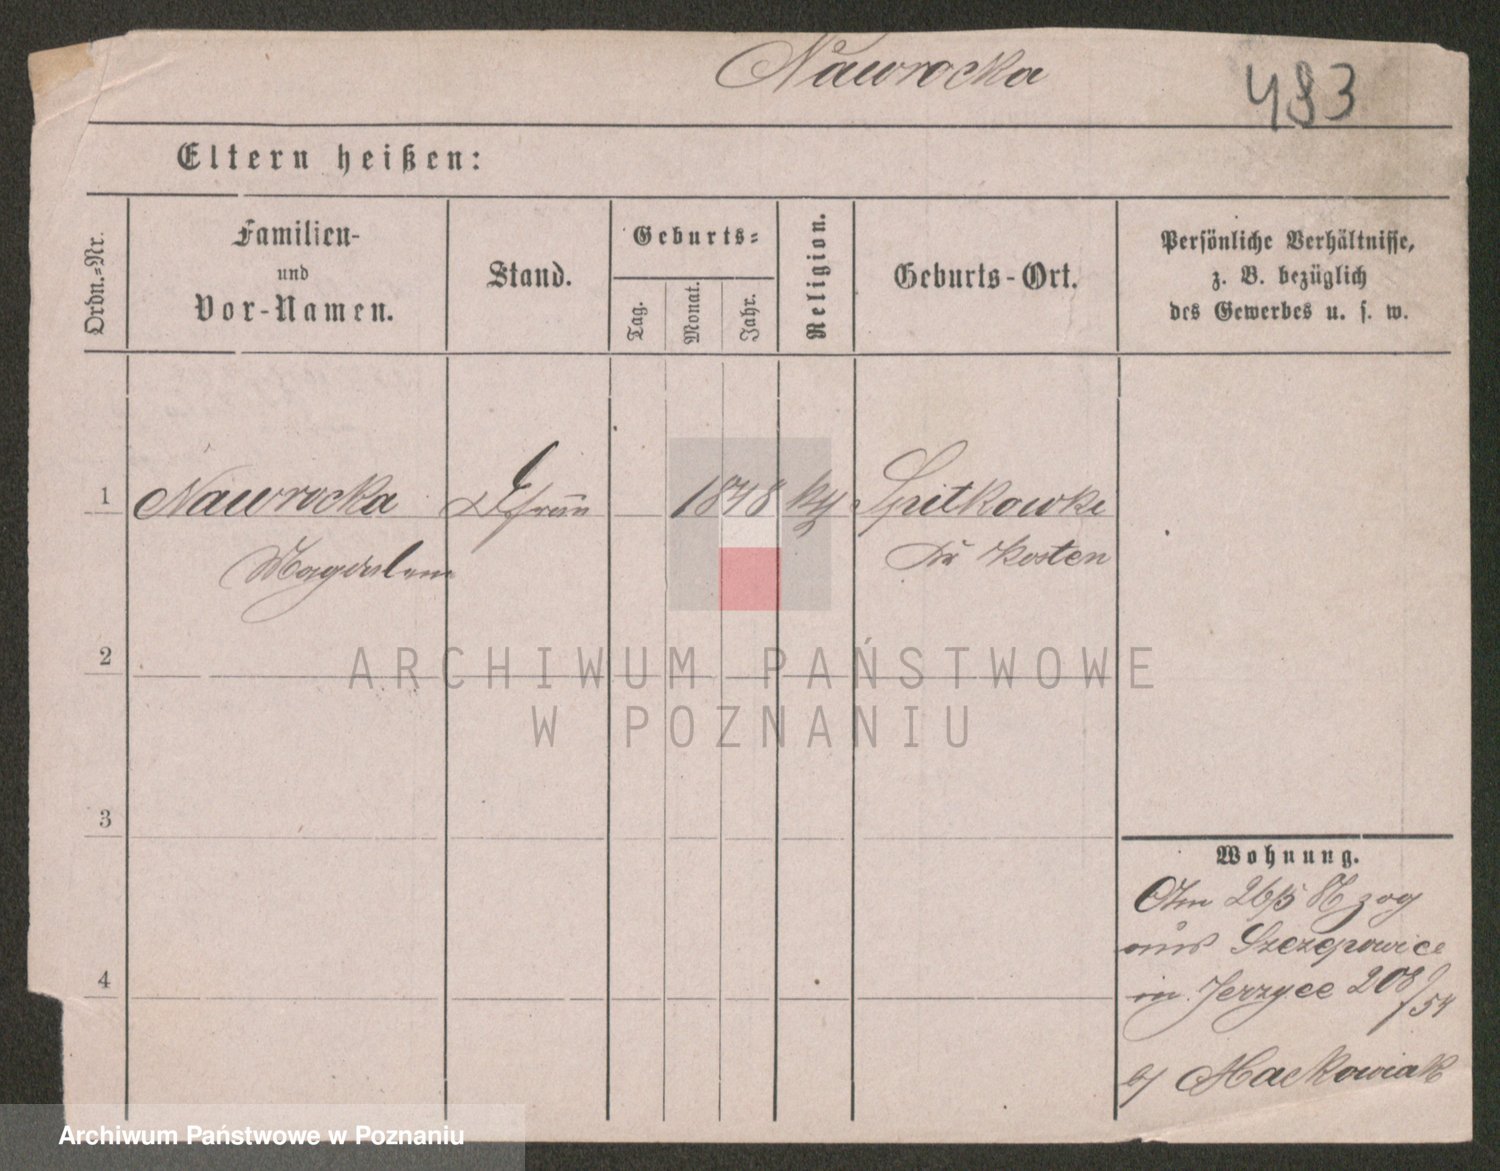 Nawrocka
483
Eltern heißen:
Ordn.-Nr.
Familien-
und
Vor-Namen.
Stand.
Geburts-
Tag.
Monat.
Jahr.
Religion.
Geburts-Ort.
Persönliche Verhältnisse,
z. B. bezüglich
des Gewerbes u. s. w.
1
Nawrocka
1848
Spitkowke
Magdalena
Kosten
2
ARCHIWUM PAŃSTWOWE
W POZNANIU
3
Wohnung.
zog
aus Szczepowice
4
in Jerzyce 208/54
b/ Mackowiak
Archiwum Państwowe w Poznaniu